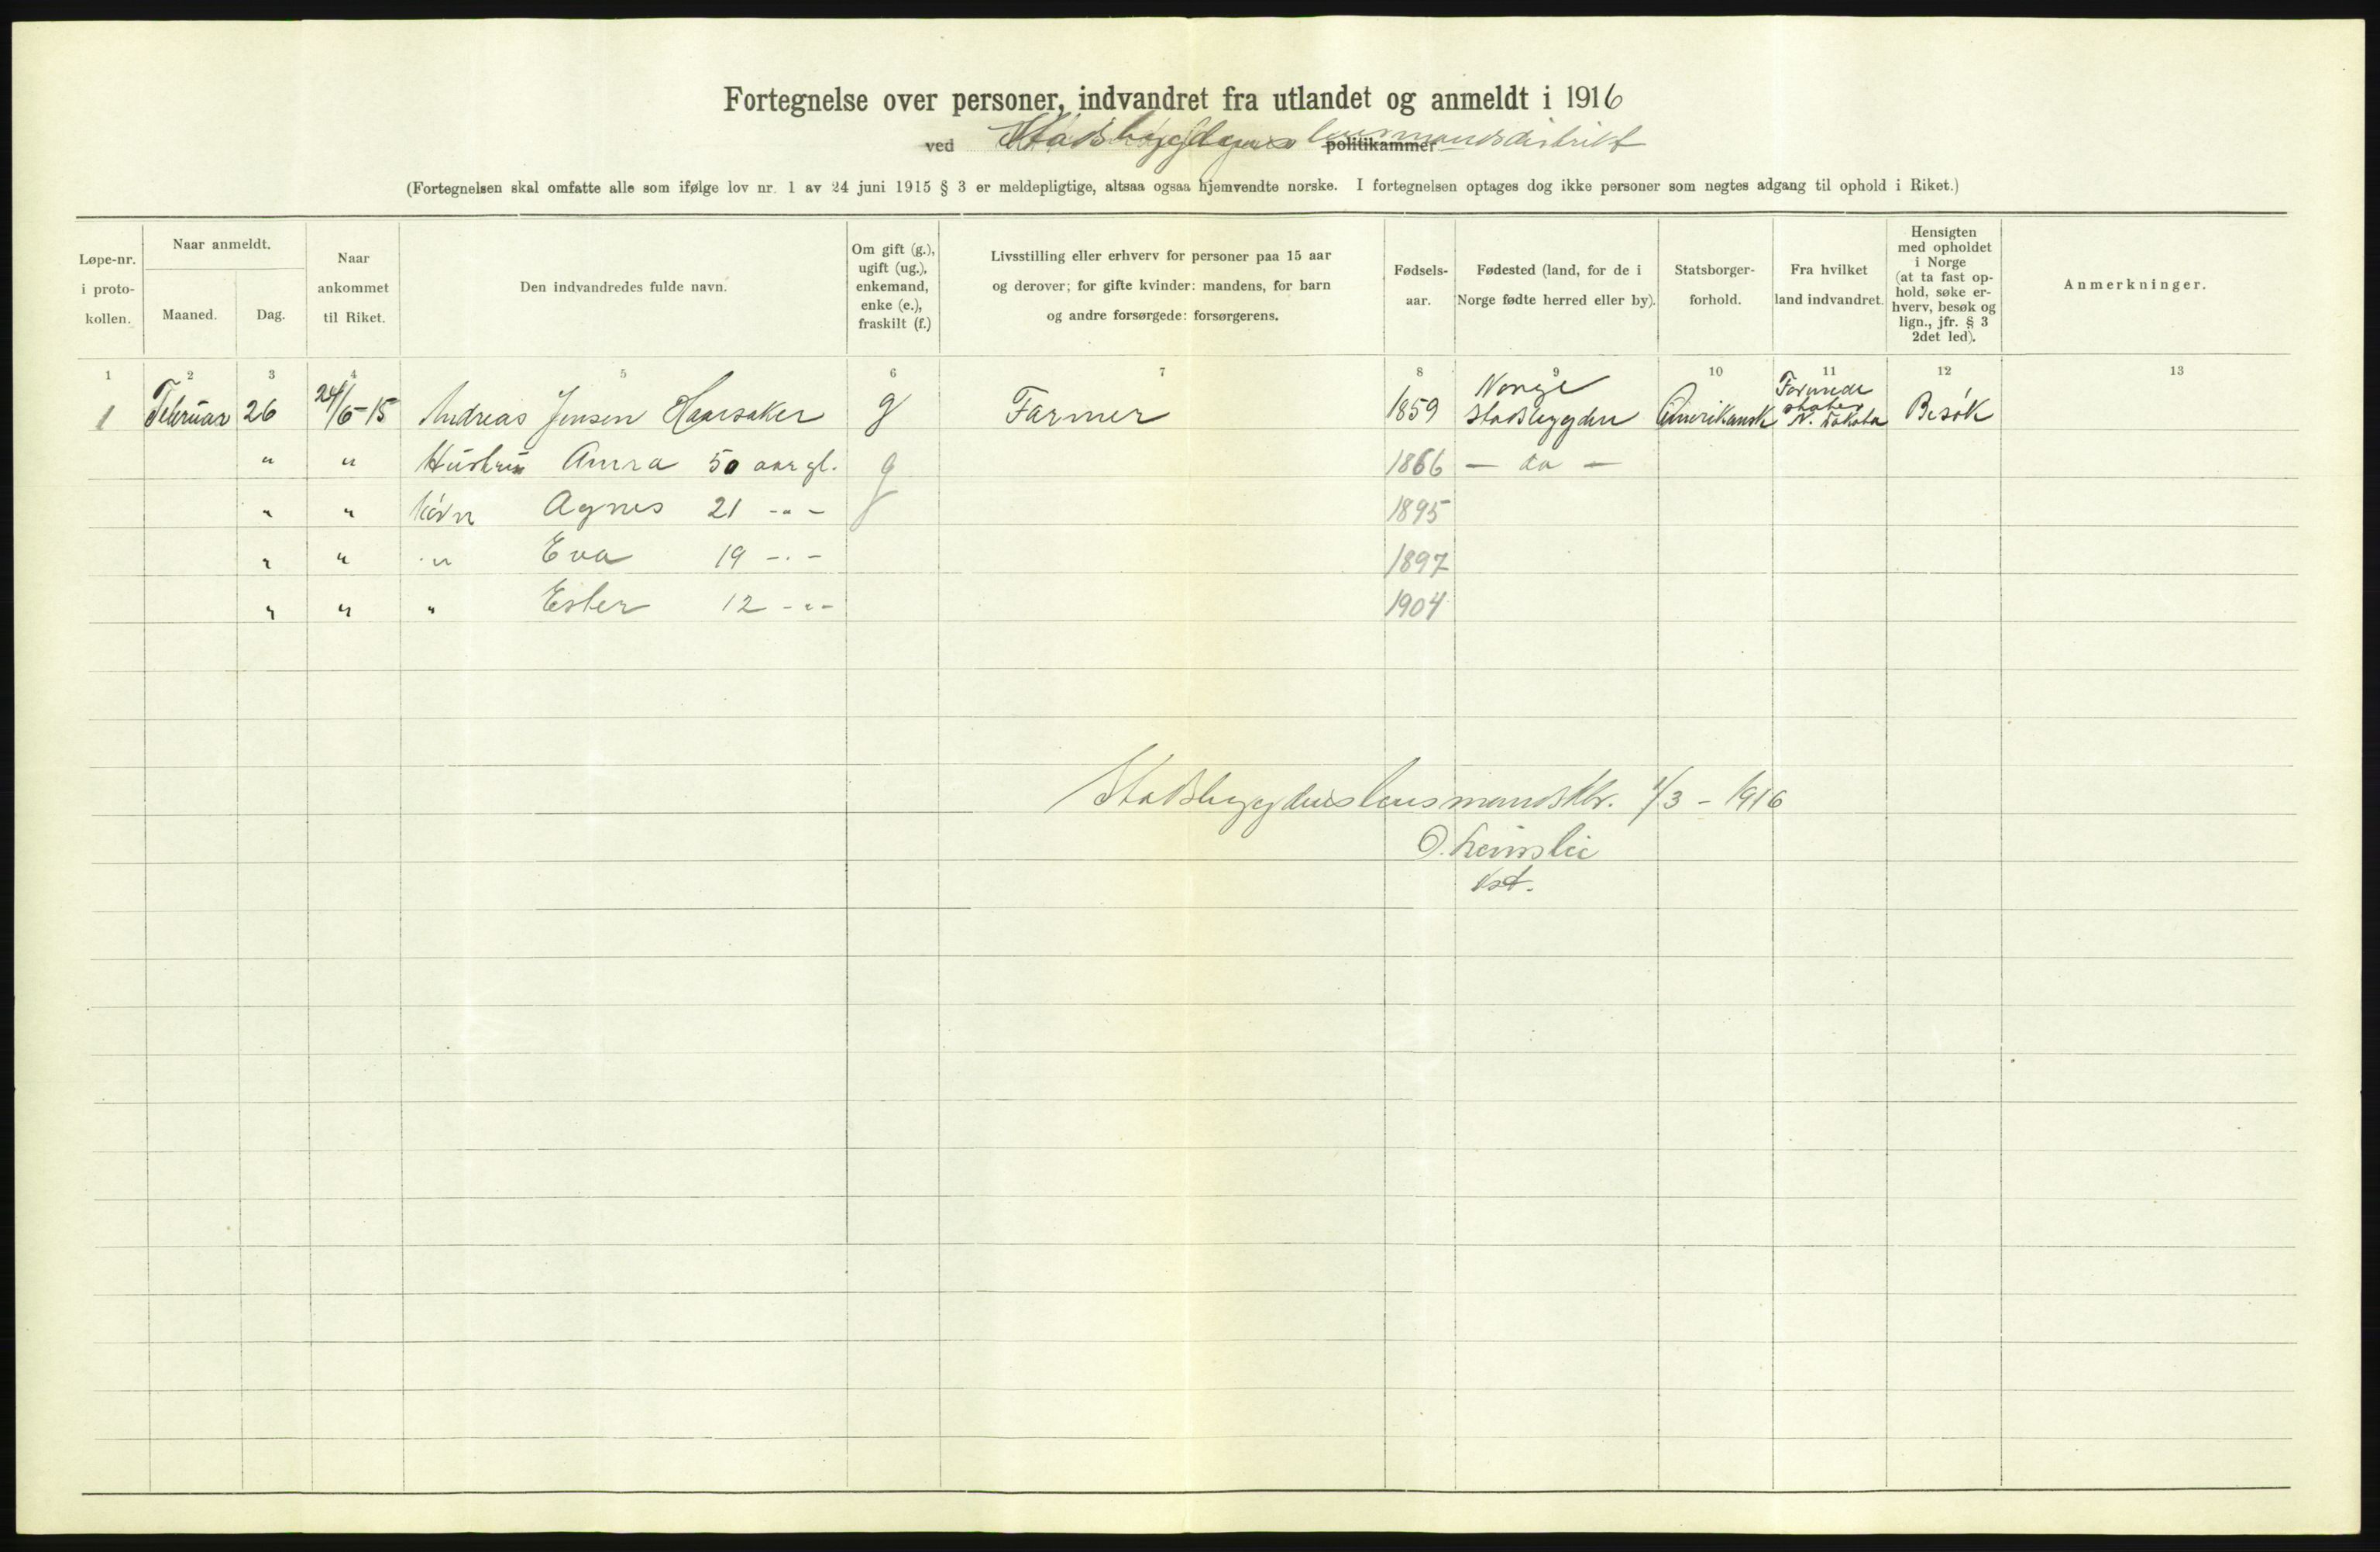 Fortegnelse over personer, indvandret fra utlandet og anmeldt i 1916
ved Stadsbygdens politikammer lensmandsdistrikt
(Fortegnelsen skal omfatte alle som ifølge lov nr. 1 av 24 juni 1915 § 3 er meldepligtige, altsaa ogsaa hjemvendte norske. I fortegnelsen optages dog ikke personer som negtes adgang til ophold i Riket.)
Løpe-nr. i proto-kollen.
Naar anmeldt.
Maaned. Dag.
Naar ankommet til Riket.
Den indvandredes fulde navn.
Om gift (g.), ugift (ug.), enkemand, enke (e.), fraskilt (f.)
Livsstilling eller erhverv for personer paa 15 aar og derover; for gifte kvinder: mandens, for barn og andre forsørgede: forsørgerens.
Fødsels-aar.
Fødested (land, for de i Norge fødte herred eller by).
Statsborger-forhold.
Fra hvilket land indvandret.
Hensigten med opholdet i Norge (at ta fast op-hold, søke er-hverv, besøk og lign., jfr. § 3 2det led).
Anmerkninger.
1 2 3 4 5 6 7 8 9 10 11 12 13
1 Februar 26 24/6-15 Andreas Jensen Haarsaker g Farmer 1859 Norge Stadsbygden Amerikansk Forenede stater N. Dakota Besøk
" " Hustru Anna 50 aar gl. g 1866 — do —
" " Børn Agnes 21 -"- g 1895
" " " Eva 19 -"- 1897
" " " Ester 12 -"- 1904
Stadsbygdens lensmandsktr. 1/3 - 1916
O.
kst.